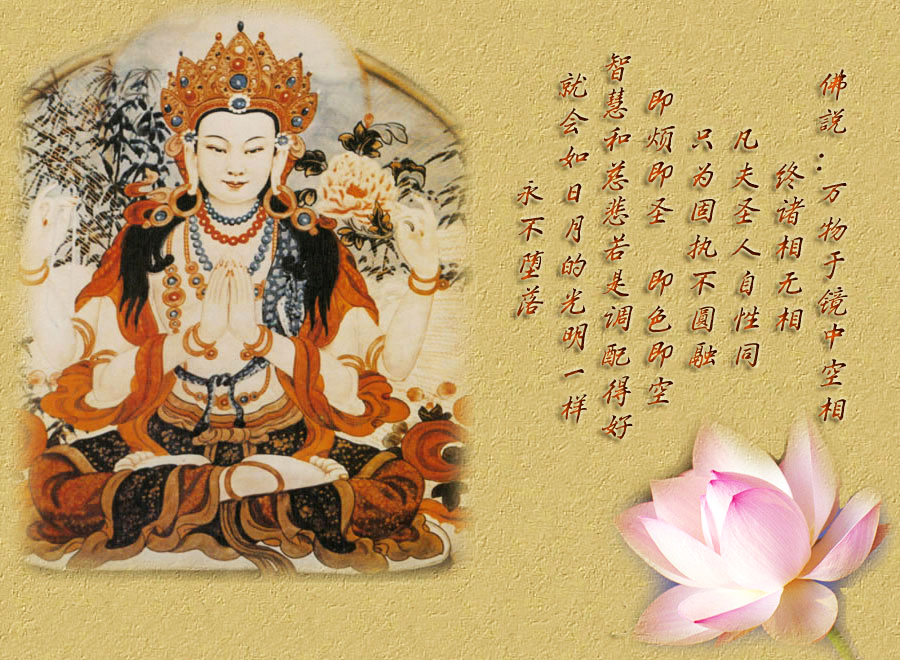 佛説：万物于镜中空相
终诸相无相
凡夫圣人自性同
只为固执不圓融
即烦即圣　即色即空
智慧和慈悲若是调配得好
就会如日月的光明一样
永不堕落